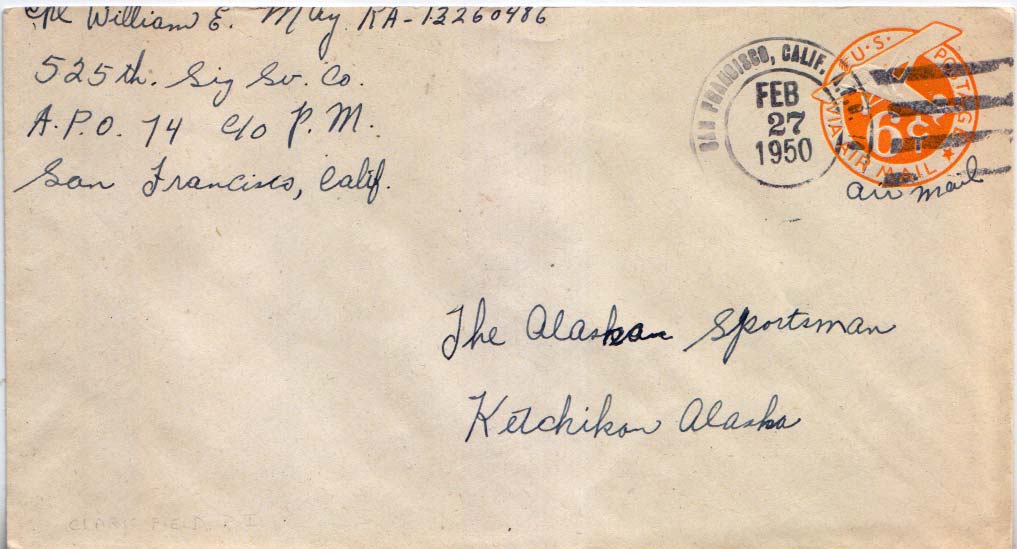 Cpl William E. May RA-13260486
525th. Sig Sv. Co.
A.P.O. 74 c/o P.M.
San Francisco, Calif.
SAN FRANCISCO, CALIF. A.P.O.
FEB
27
1950
U.S. POSTAGE
6¢
VIA AIR MAIL
air mail
The Alaskan Sportsman
Ketchikan Alaska
CLARK FIELD, P I